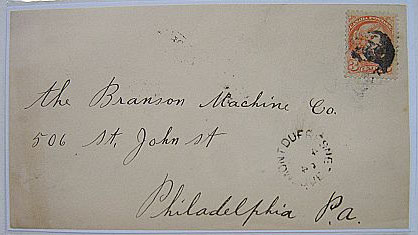 The Branson Machine Co.
506 St. John st
Philadelphia P.a.